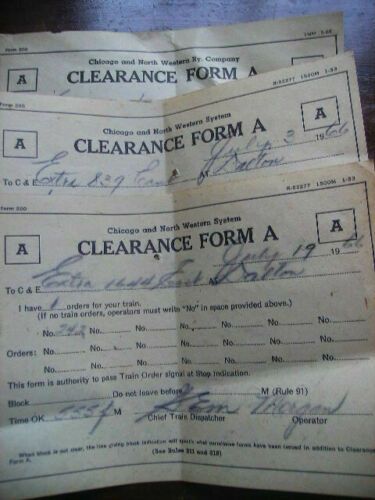 Form 200
Chicago and North Western Ry. Company
A CLEARANCE FORM A
Form 200 N-22277 1500M 1-53
Chicago and North Western System
A CLEARANCE FORM A A
July 3 1966
To C & E Extra 839 East Dalton
Form 200 N-22277 1500M 1-53
Chicago and North Western System
A CLEARANCE FORM A A
July 19 1966
To C & E Extra 1644 East Dalton
I have 1 orders for your train.
(If no train orders, operators must write "No" in space provided above.)
No. 242 No. No. No. No. No.
Orders: No. No. No. No. No. No.
No. No. No. No. No. No.
This form is authority to pass Train Order signal at Stop Indication.
Block Do not leave before M (Rule 91)
Time OK M Morgan
Chief Train Dispatcher Operator
When block is not clear, the line giving block indication will specify what restrictive forms have been issued in addition to Clearance
Form A.
(See Rules 211 and 218)